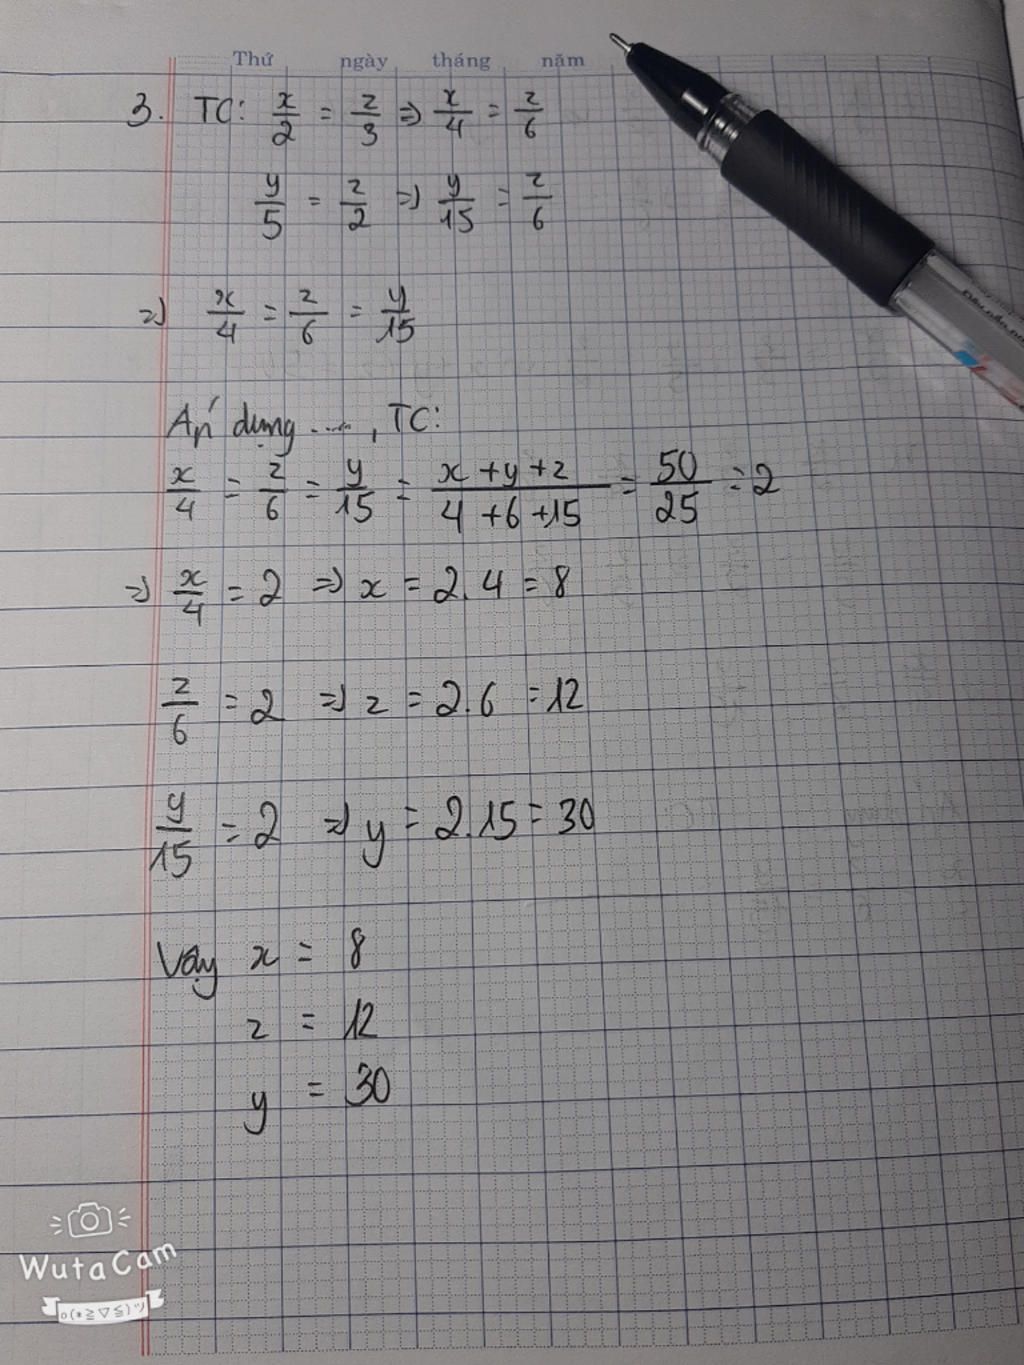 Thứ ngày tháng năm
3. TC: x/2 = z/3 => x/4 = z/6
y/5 = z/2 => y/15 = z/6
=> x/4 = z/6 = y/15
Áp dụng ...., TC:
x/4 = z/6 = y/15 = (x+y+z)/(4+6+15) = 50/25 = 2
=> x/4 = 2 => x = 2.4 = 8
z/6 = 2 => z = 2.6 = 12
y/15 = 2 => y = 2.15 = 30
Vậy x = 8
z = 12
y = 30
WutaCam